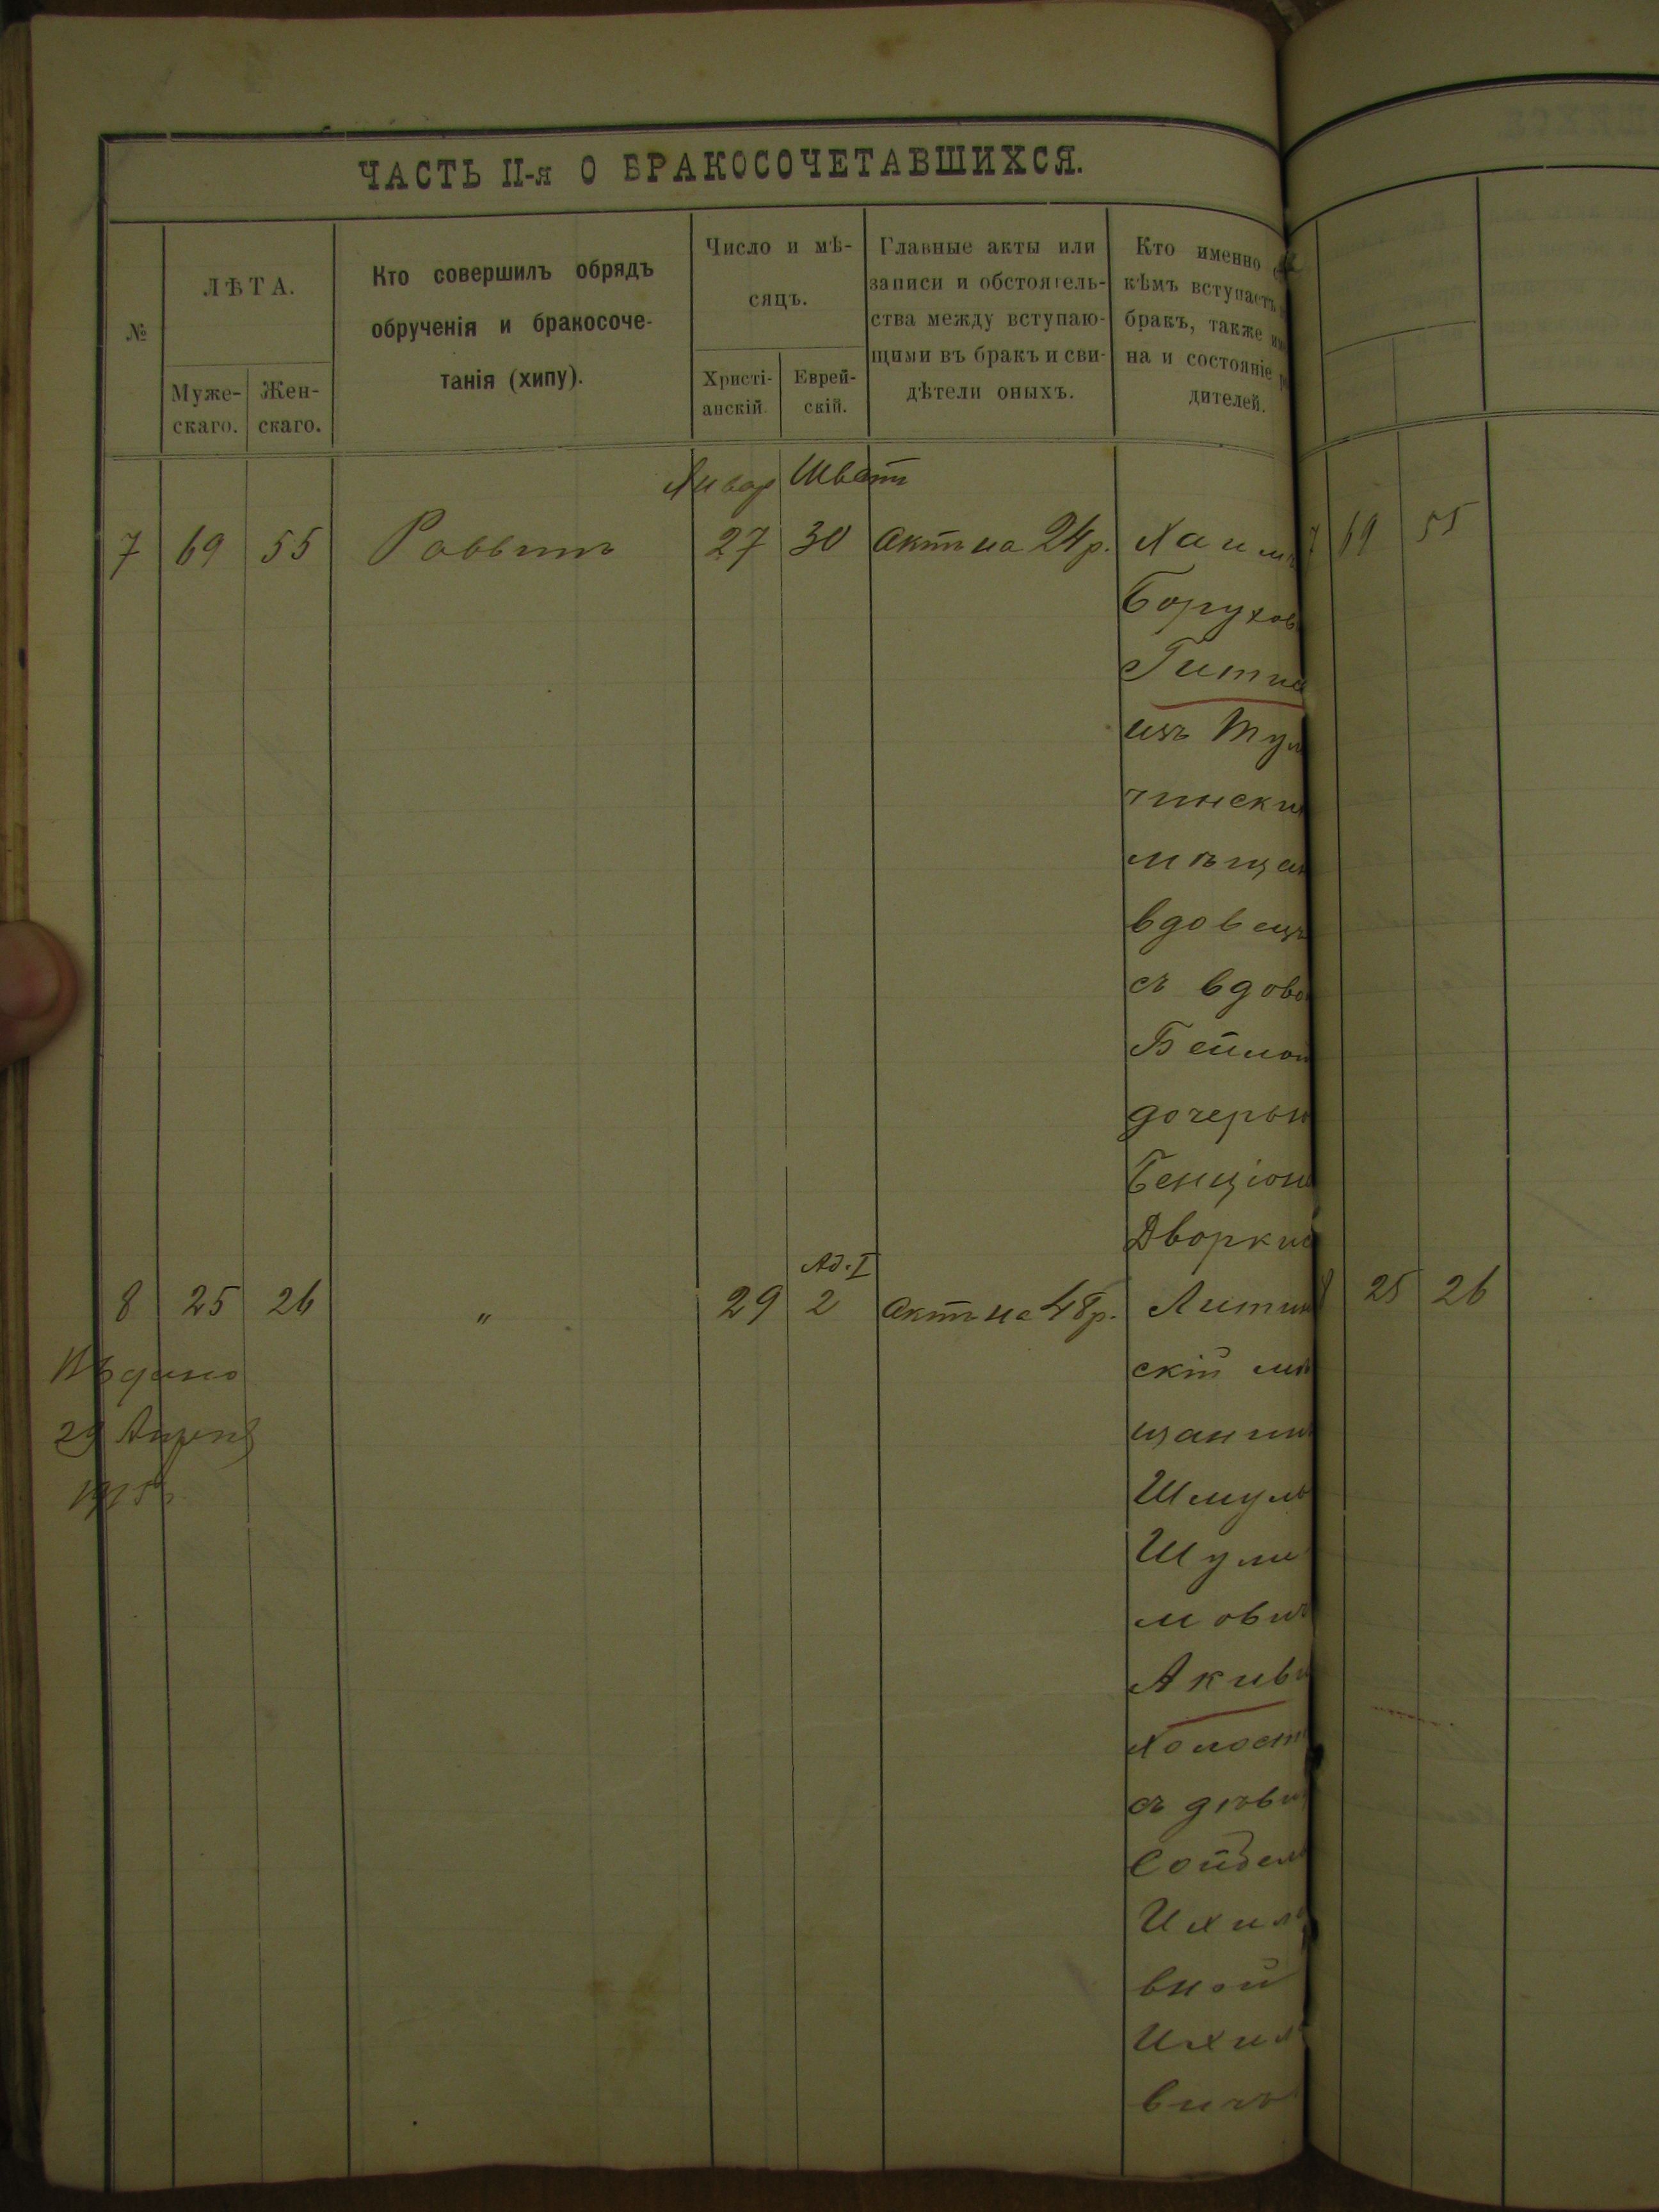 ЧАСТЬ II-я О БРАКОСОЧЕТАВШИХСЯ.
№
ЛѢТА.
Муже-
скаго.
Жен-
скаго.
Кто совершилъ обрядъ
обрученія и бракосоче-
танія (хипу).
Число и мѣ-
сяцъ.
Христі-
анскій.
Еврей-
скій.
Главные акты или
записи и обстоятель-
ства между вступаю-
щими въ бракъ и сви-
дѣтели оныхъ.
Кто именно
кѣмъ вступаетъ
бракъ, также
на и состояніе
дителей.
Январ Шватъ
7 69 55 Раввинъ 27 30 Актъ на 24 р. Хаимъ
Борухов
Гитма
изъ Туль
чински
мѣщан
вдовецъ
съ вдово
Бейлой
дочерью
Бенціон
Дворкин
Ад. I
8 25 26 " 29 2 Актъ на 48 р. Литин
скій мѣ
щанин
Шмуль
Шули
мович
Акиви
холост
съ дѣви
Сойбель
Ихиль
вной
Ихиль
вичъ
29 Апреля
7 69 55
8 25 26